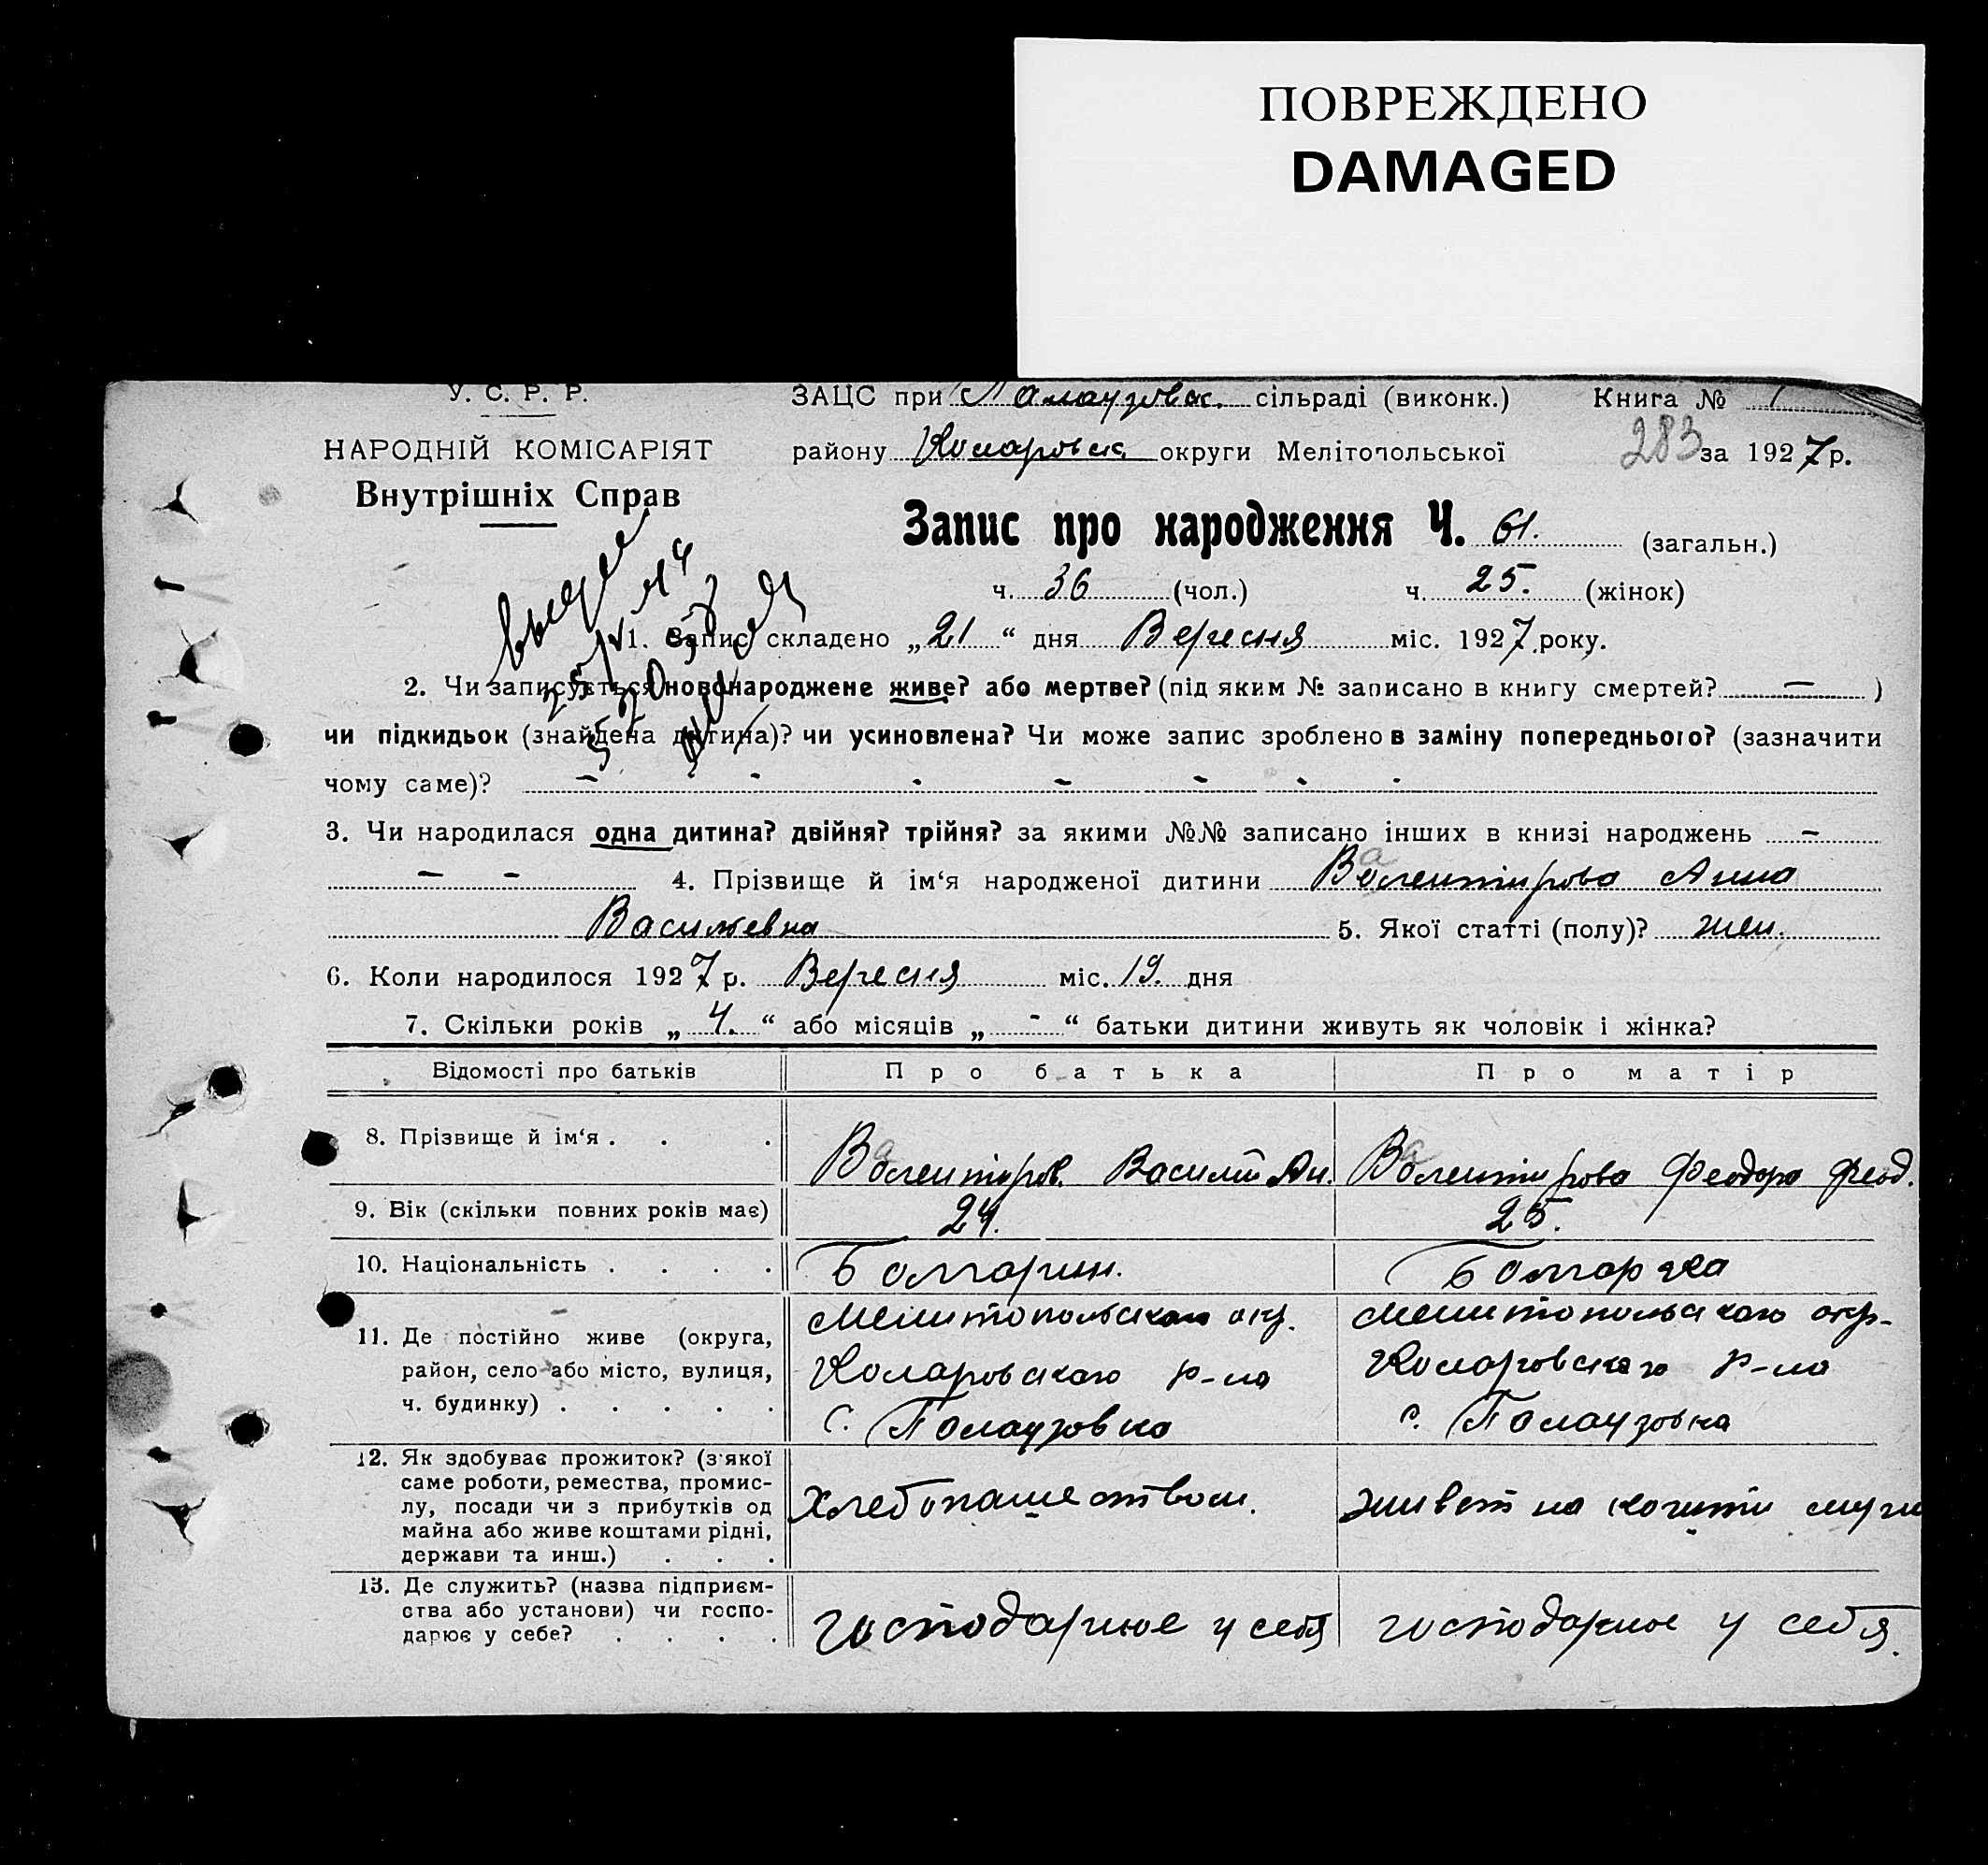 ПОВРЕЖДЕНО
DAMAGED
У. С. Р. Р.
ЗАЦС при Палаузовск. сільраді (виконк.) Книга № 1
НАРОДНІЙ КОМІСАРІЯТ
району Коларовск. округи Мелітопольської 283 за 1927 р.
Внутрішніх Справ
Запис про народження Ч. 61. (загальн.)
ч. 36 (чол.) ч. 25. (жінок)
1. Запис складено „21“ дня Вересня міс. 1927 року.
2. Чи записується новонароджене живе? або мертве? (під яким № записано в книгу смертей? — )
чи підкидьок (знайдена дитина)? чи усиновлена? Чи може запис зроблено в заміну попереднього? (зазначити
чому саме)? - - - - - - -
3. Чи народилася одна дитина? двійня? трійня? за якими №№ записано інших в книзі народжень -
- - 4. Прізвище й ім‘я народженої дитини Валентирова Анна
Васильевна 5. Якої статті (полу)? жен.
6. Коли народилося 1927 р. Вересня міс. 19. дня
7. Скільки років „ 4. “ або місяців „ - “ батьки дитини живуть як чоловік і жінка?
Відомості про батьків Про батька Про матір
8. Прізвище й ім‘я . . . Валентиров. Василий Ан. Валентирова Феодора Феод.
9. Вік (скільки повних років має) 24. 25.
10. Національність . . . . Болгарин. Болгарка
Мелитопольского окр. Мелитопольского окр.
11. Де постійно живе (округа,
район, село або місто, вулиця, Коларовского р-на Коларовского р-на
ч. будинку) . . . . . с. Палаузовка с. Палаузовка
12. Як здобуває прожиток? (з'якої
саме роботи, ремества, промис-
лу, посади чи з прибутків од Хлебопашеством. живет на кошти мужа
майна або живе коштами рідні,
держави та инш.) . . .
13. Де служить? (назва підприєм-
ства або установи) чи госпо- господарює у себя господарює у себя.
дарює у себе? . . . .